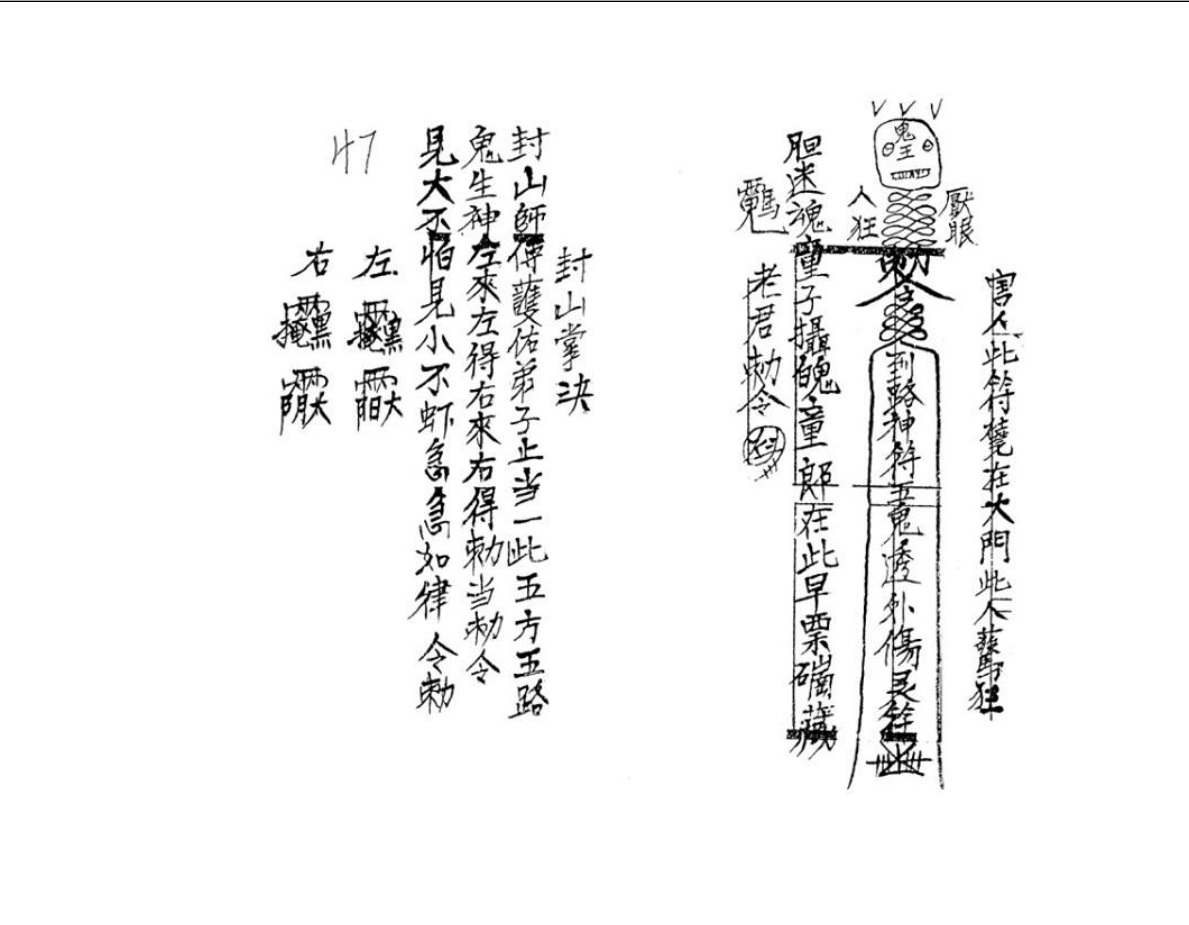 害人此符在大門此人狂
厭眼
鬼王
勅令
路神符五鬼透外傷灵
人狂
胆迷魂童子攝魄童郎在此早栗
老君勅令
封山掌決
封山師傅護佑弟子止当一此五方五路
鬼生神左來左得右來右得勅当勅令
見大不怕見小不虾急急如律令勅
左
右
47